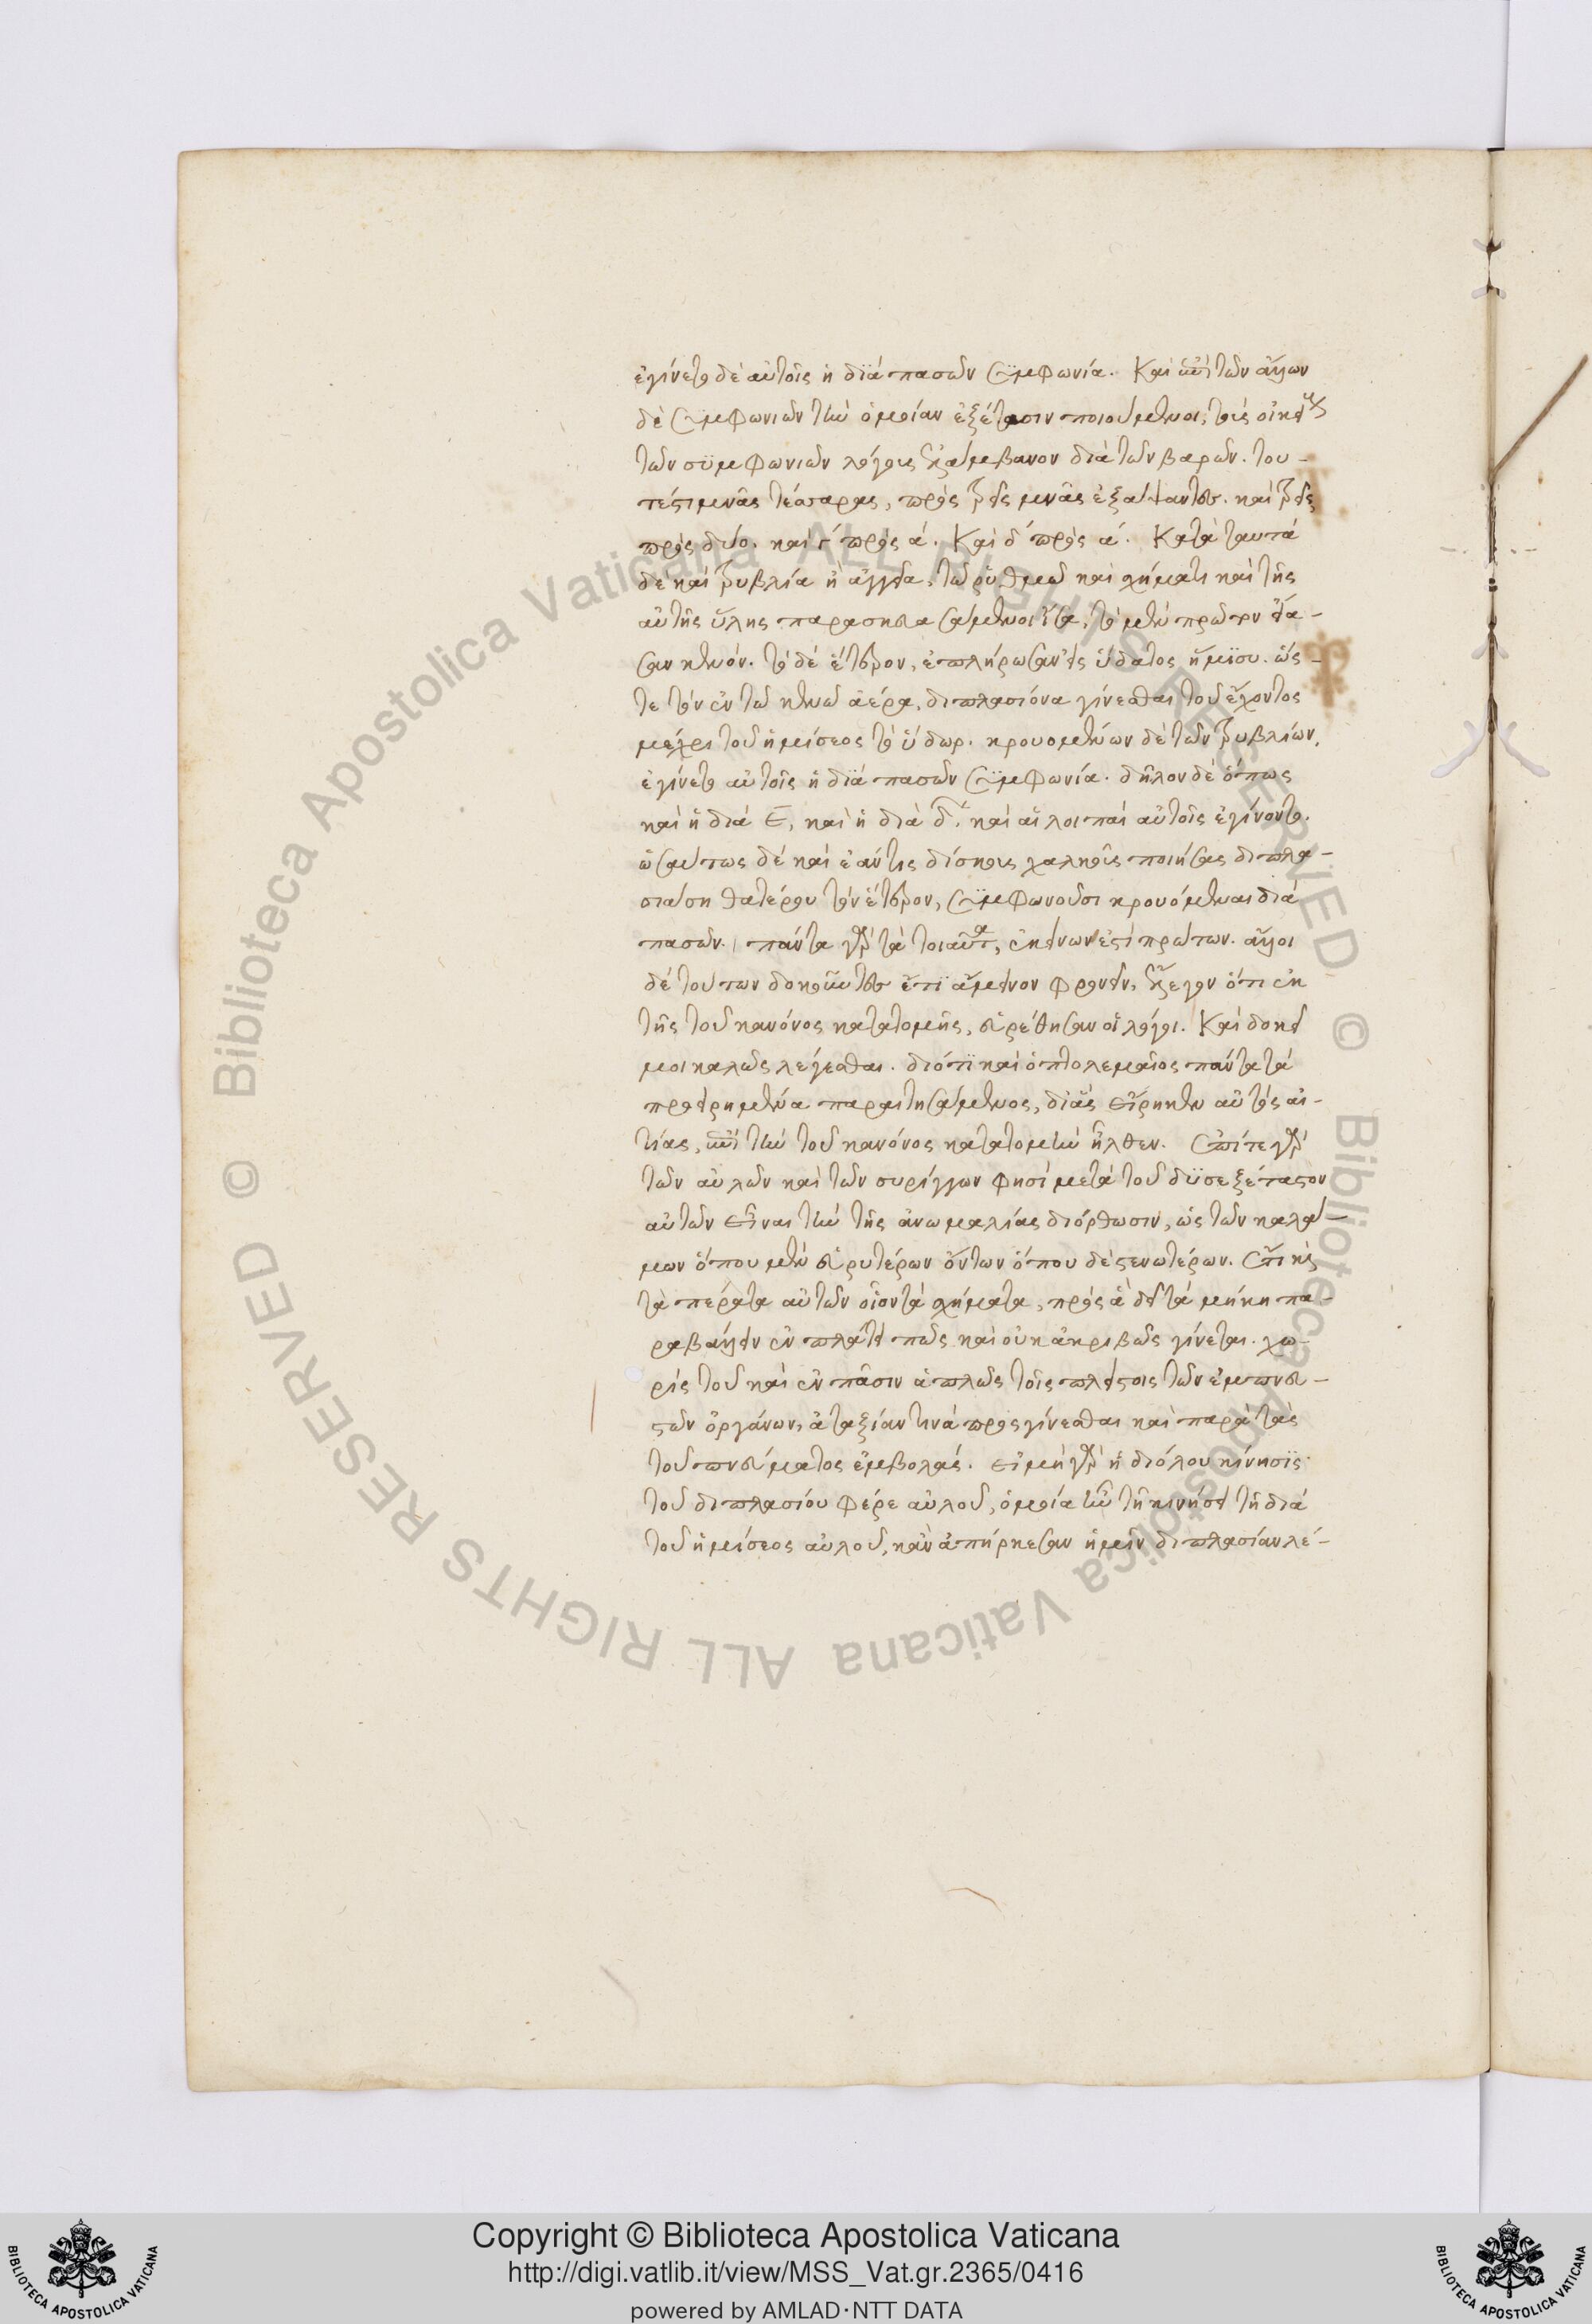 ἐγίνετο δὲ αὐτοῖς ἡ διὰ πασῶν συμφωνία. Καὶ ἐπὶ τῶν ἄλλων
δὲ συμφωνιῶν τὴν ὁμοίαν ἐξέτασιν ποιούμενοι, τοὺς οἰκείους
τῶν συμφωνιῶν λόγους ἐλάμβανον διὰ τῶν βαρῶν. του-
τέστι μνᾶς τέσσαρας, πρὸς τρεῖς μνᾶς ἐξάψαντες. καὶ τρεῖς
πρὸς δύο. καὶ γ πρὸς α. Καὶ δ πρὸς α. Κατὰ ταυτὰ
δὲ καὶ τρυβλία ἢ ἀγγεῖα, τῷ ῥυθμῷ καὶ σχήματι καὶ τῆς
αὐτῆς ὕλης παρασκευασάμενοι ἴσα, τὸ μὲν πρῶτον εἴα-
σαν κενόν. τὸ δὲ ἕτερον, ἐπλήρωσαν εἰς ὕδατος ἥμισυ. ὥσ-
τε τὸν ἐν τῷ κενῷ ἀέρα, διπλασίονα γίνεσθαι τοῦ ἔχοντος
μέχρι τοῦ ἡμίσεος τὸ ὕδωρ. κρουομένων δὲ τῶν τρυβλίων,
ἐγίνετο αὐτοῖς ἡ διὰ πασῶν συμφωνία. δῆλον δὲ ὅπως
καὶ ἡ διὰ ε, καὶ ἡ διὰ δ, καὶ αἱ λοιπαὶ αὐτοῖς ἐγίνοντο.
ὡσαύτως δὲ καὶ ἐάν τις δίσκους χαλκοῦς ποιήσας διπλα-
σιάσῃ θατέρου τὸν ἕτερον, συμφωνοῦσι κρουόμεναι διὰ
πασῶν. πάντα γὰρ τὰ τοιαῦτα, ἐκείνων ἐστὶ πρώτων. ἄλλοι
δὲ τούτων δοκοῦντες ἔτι ἄμεινον φρονεῖν, ἔλεγον ὅτι ἐκ
τῆς τοῦ κανόνος κατατομῆς, εὑρέθησαν οἱ λόγοι. Καὶ δοκεῖ
μοι καλῶς λέγεσθαι. διότι καὶ ὁ πτολεμαῖος πάντα τὰ
προειρημένα παραιτησάμενος, δι' ἃς εἴρηκεν αὐτὸς αἰ-
τίας, ἐπὶ τὴν τοῦ κανόνος κατατομὴν ἦλθεν. ἐπί τε γὰρ
τῶν αὐλῶν καὶ τῶν συρίγγων φησὶ μετὰ τοῦ δυσεξέταστον
αὐτῶν εἶναι τὴν τῆς ἀνωμαλίας διόρθωσιν, ὡς τῶν καλά-
μων ὅπου μὲν εὐρυτέρων ὄντων ὅπου δὲ στενωτέρων. ἔτι καὶ
τὰ πέρατα αὐτῶν οἱονεὶ τὰ σχήματα, πρὸς ἃ δεῖ τὰ μήκη πα-
ραβάλλειν ἐν πλάτει πως καὶ οὐκ ἀκριβῶς γίνεται. χω-
ρὶς τοῦ καὶ ἐν πᾶσιν ἁπλῶς τοῖς πλείστοις τῶν ἐμπνευ-
στῶν ὀργάνων, ἀταξίαν τινὰ προσγίνεσθαι καὶ παρὰ τὰς
τοῦ πνεύματος ἐμβολάς. εἰ μὴ γὰρ ἡ δι' ὅλου κίνησις
τοῦ διπλασίου φέρε αὐλοῦ, ὁμοία ἦν τῇ κινήσει τῇ διὰ
τοῦ ἡμίσεος αὐλοῦ, κἂν ἀπήρκεσαν ἡμῖν διπλασίαν λέ-
Copyright © Biblioteca Apostolica Vaticana
http://digi.vatlib.it/view/MSS_Vat.gr.2365/0416
powered by AMLAD·NTT DATA
BIBLIOTECA APOSTOLICA VATICANA
BIBLIOTECA APOSTOLICA VATICANA
© Biblioteca Apostolica Vaticana ALL RIGHTS RESERVED © Biblioteca Apostolica Vaticana ALL RIGHTS RESERVED